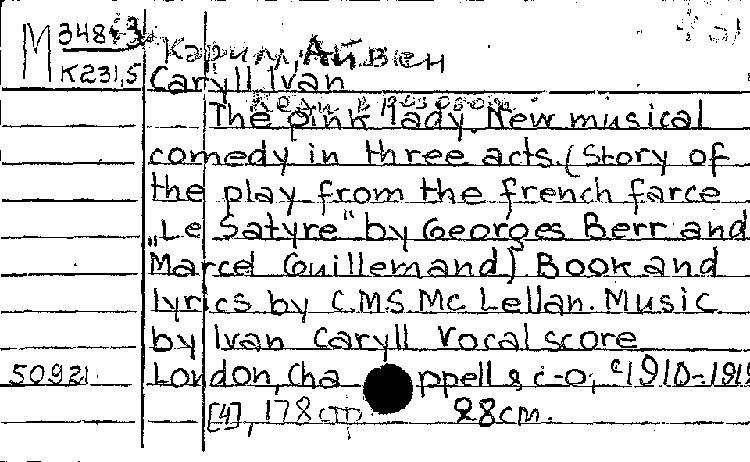 M 3481-3
K231,5
Кэрилл, Айвен
Caryll Ivan
The pink lady. New musical
comedy in three acts. (Story of
the play from the french farce
„Le Satyre" by Georges Berr and
Marcel Guillemand) Book and
lyrics by C.M.S. Mc Lellan. Music
by Ivan Caryll Vocal score
50921 London, Chappell & c-o, c1910-191
[4], 178 стр 28см.